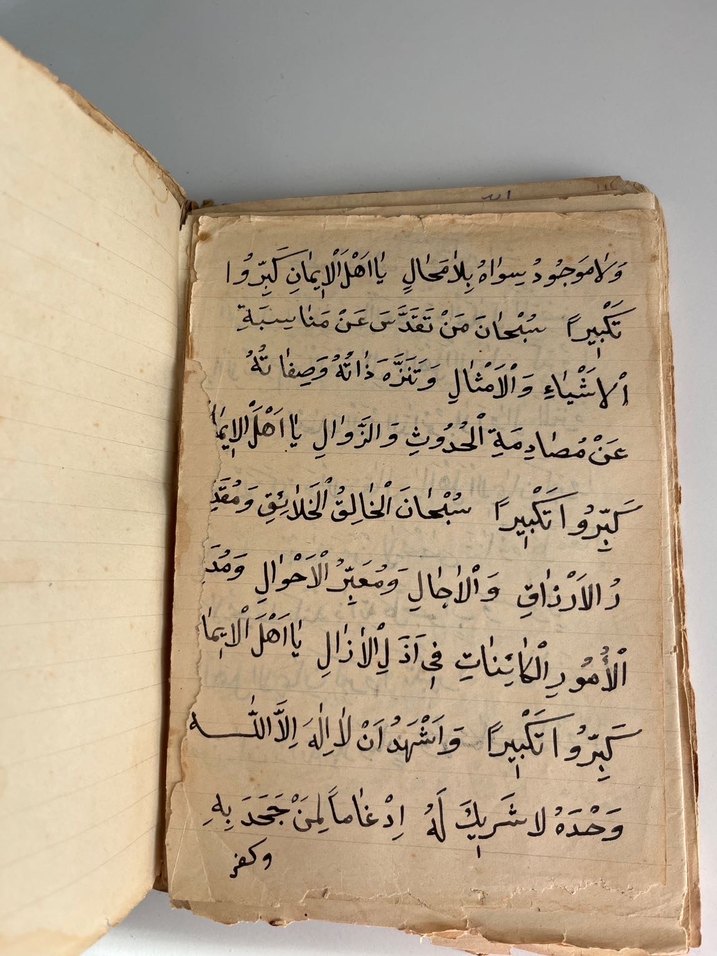 وَلَا مَوْجُودُ سِوَاهُ بِلَا مَحَالٍ يَا اَهْلَ الْاِيمَانِ كَبِّرُوا
تَكْبِيرًا سُبْحَانَ مَنْ تَقَدَّسَ عَنْ مَنَاسِبَةِ
الْاَشْيَاءِ وَالْاَمْثَالِ وَتَنَزَّهَ ذَاتُهُ وَصِفَاتُهُ
عَنْ مُصَادِمَةِ الْحُدُوثِ وَالزَّوَالِ يَا اَهْلَ الْاِيمَا
كَبِّرُوا تَكْبِيرًا سُبْحَانَ الْخَالِقُ الْخَلَائِقِ وَمُقَدِّ
رُ الْاَرْزَاقِ وَالْاٰجَالِ وَمُعَبِّرُ الْاَحْوَالِ وَمُدَ
الْاُمُورِ الْكَائِنَاتِ فِي اَذَلِ الْاَزَالِ يَا اَهْلَ الْاِيمَا
كَبِّرُوا تَكْبِيرًا وَاَشْهَدُ اَنْ لَا اِلٰهَ اِلَّا اللّٰه
وَحْدَهُ لَا شَرِيكَ لَهُ اِدْغَاماً لِمَنْ جَحَدَ بِهِ
وكفر